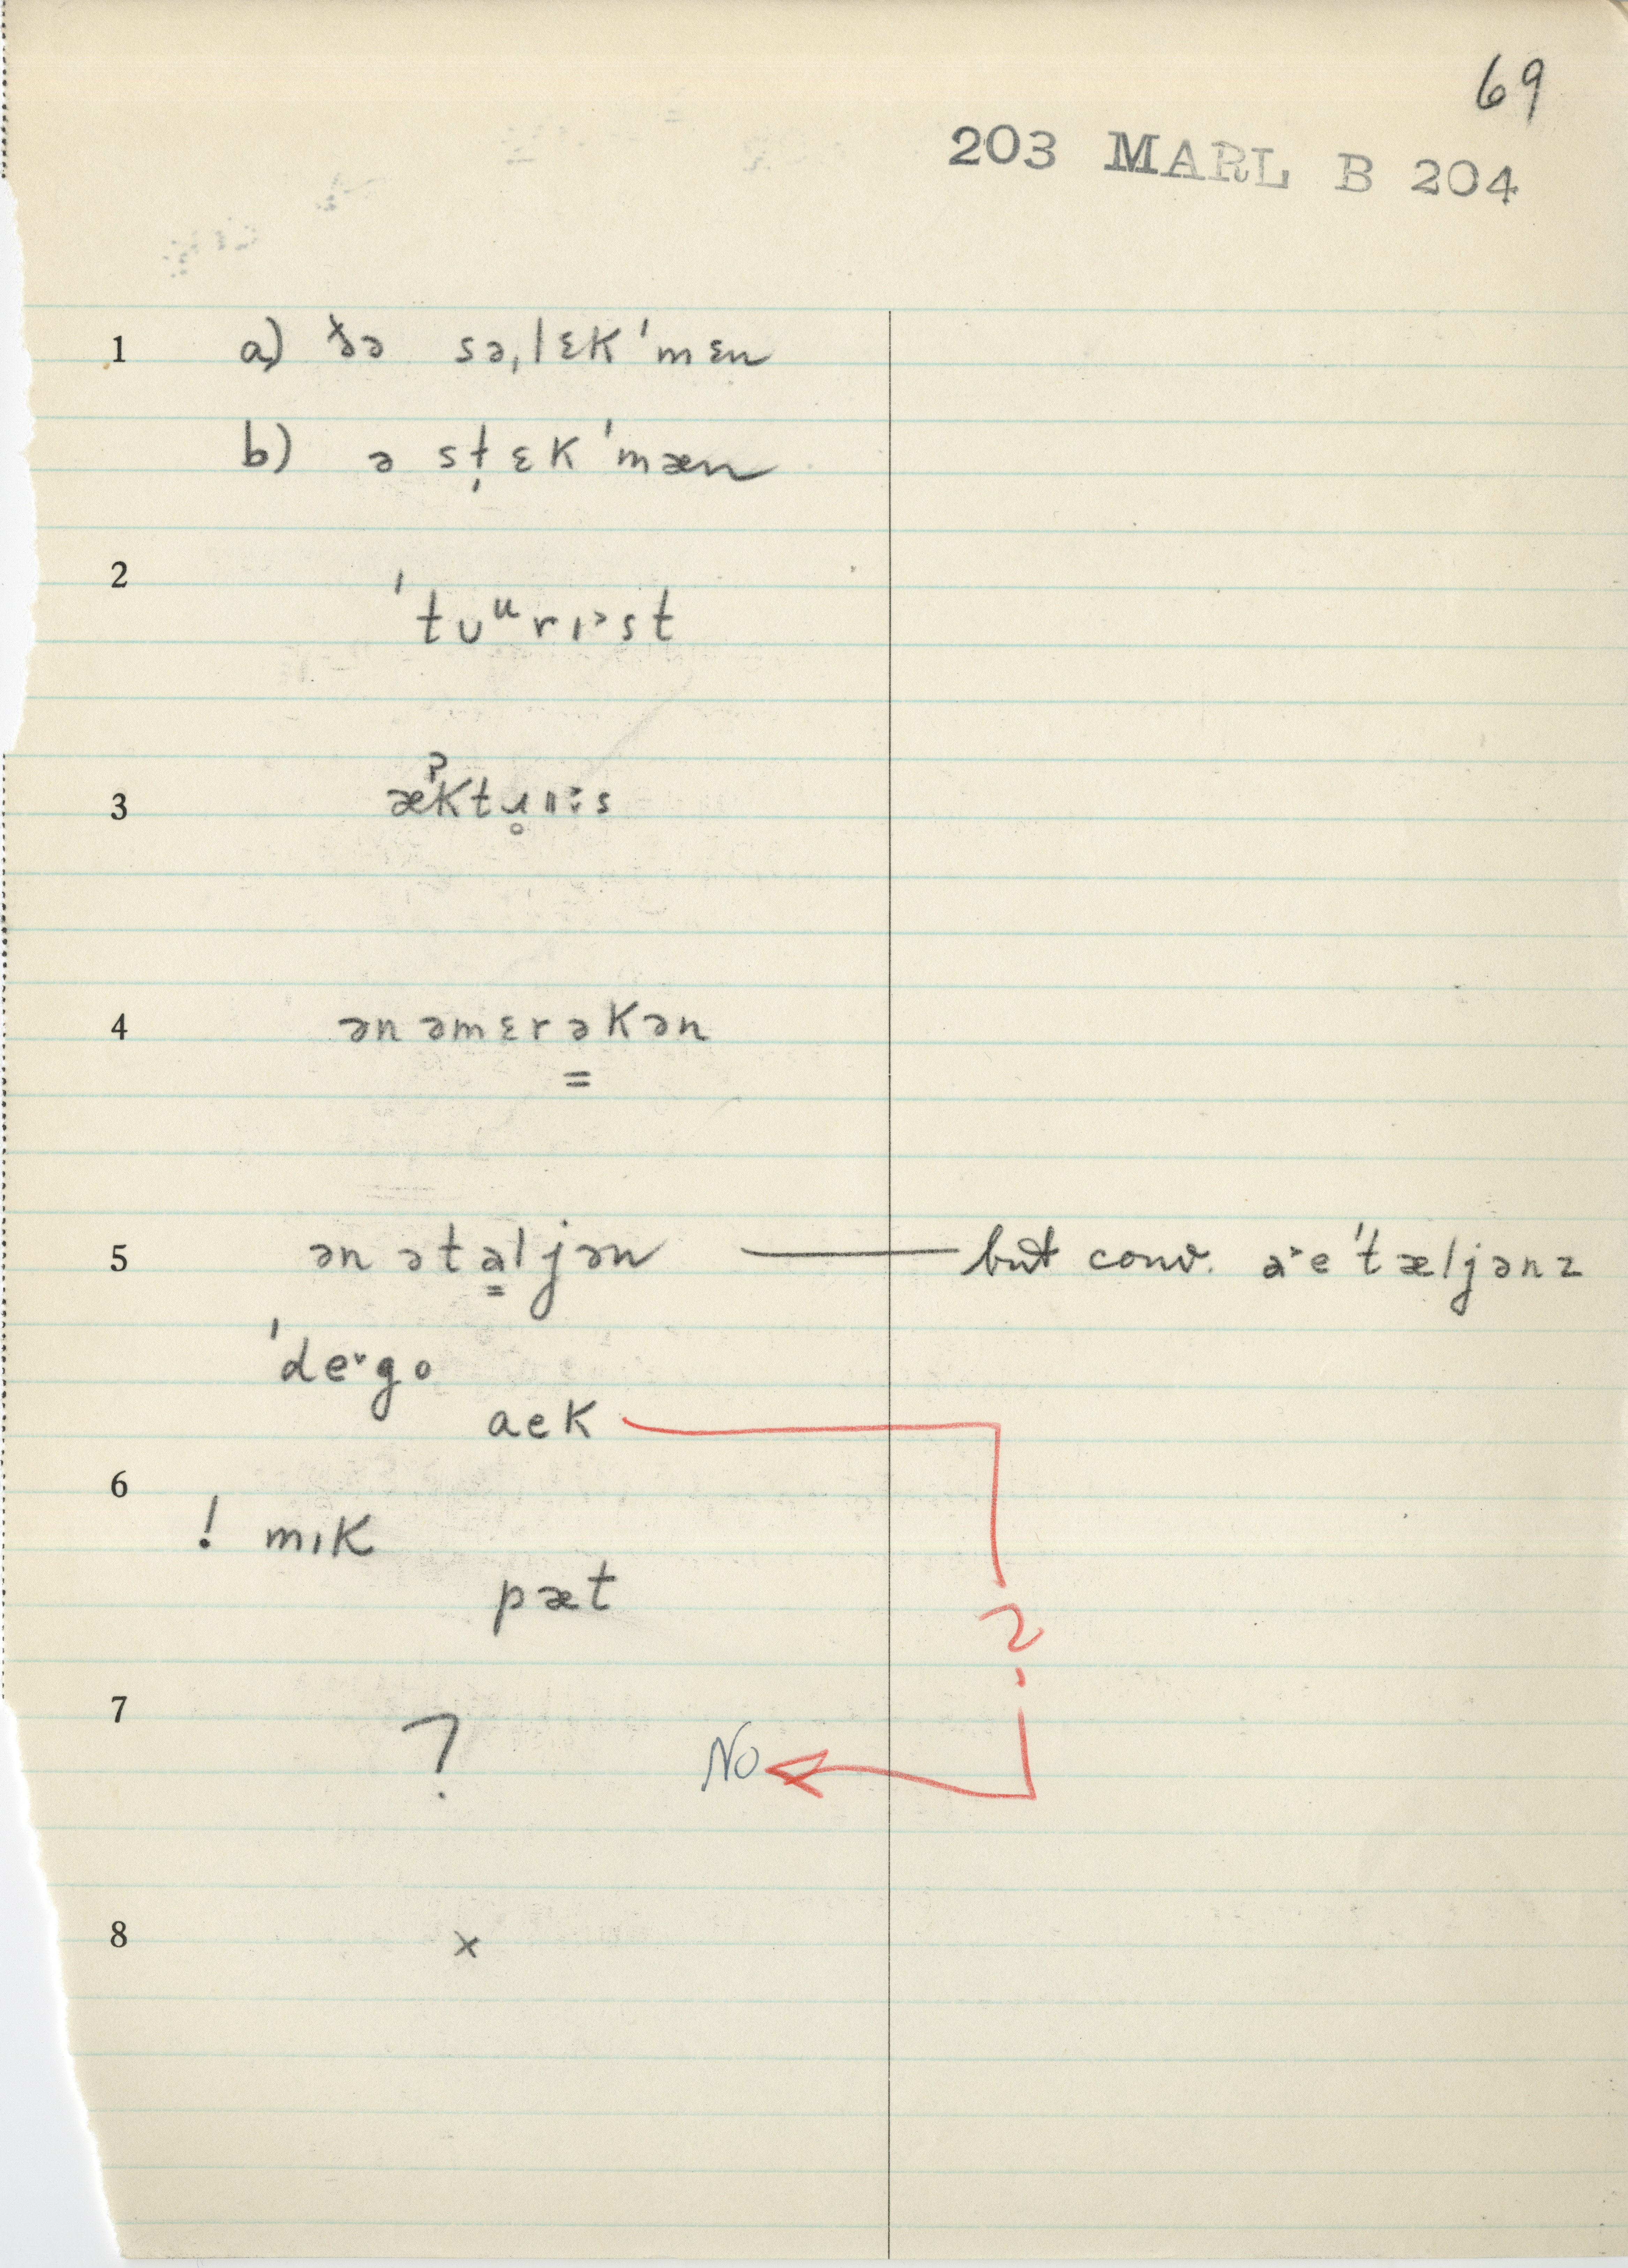 69
203 MARL B 204
1 a) ðə sə,lɛk'mɛn
b) ə st̩ɛk'mæn
2 'tʊᵘrɪ˃st
3 æˀktɹ̥ɪ˃s
4 ən əmɛrə̳kən
5 ən əta̳ljən — but conv. a˃e'tæljənz
'de˅go
aek
6 ! mɪk
pæt
?
7 ? No
8 x